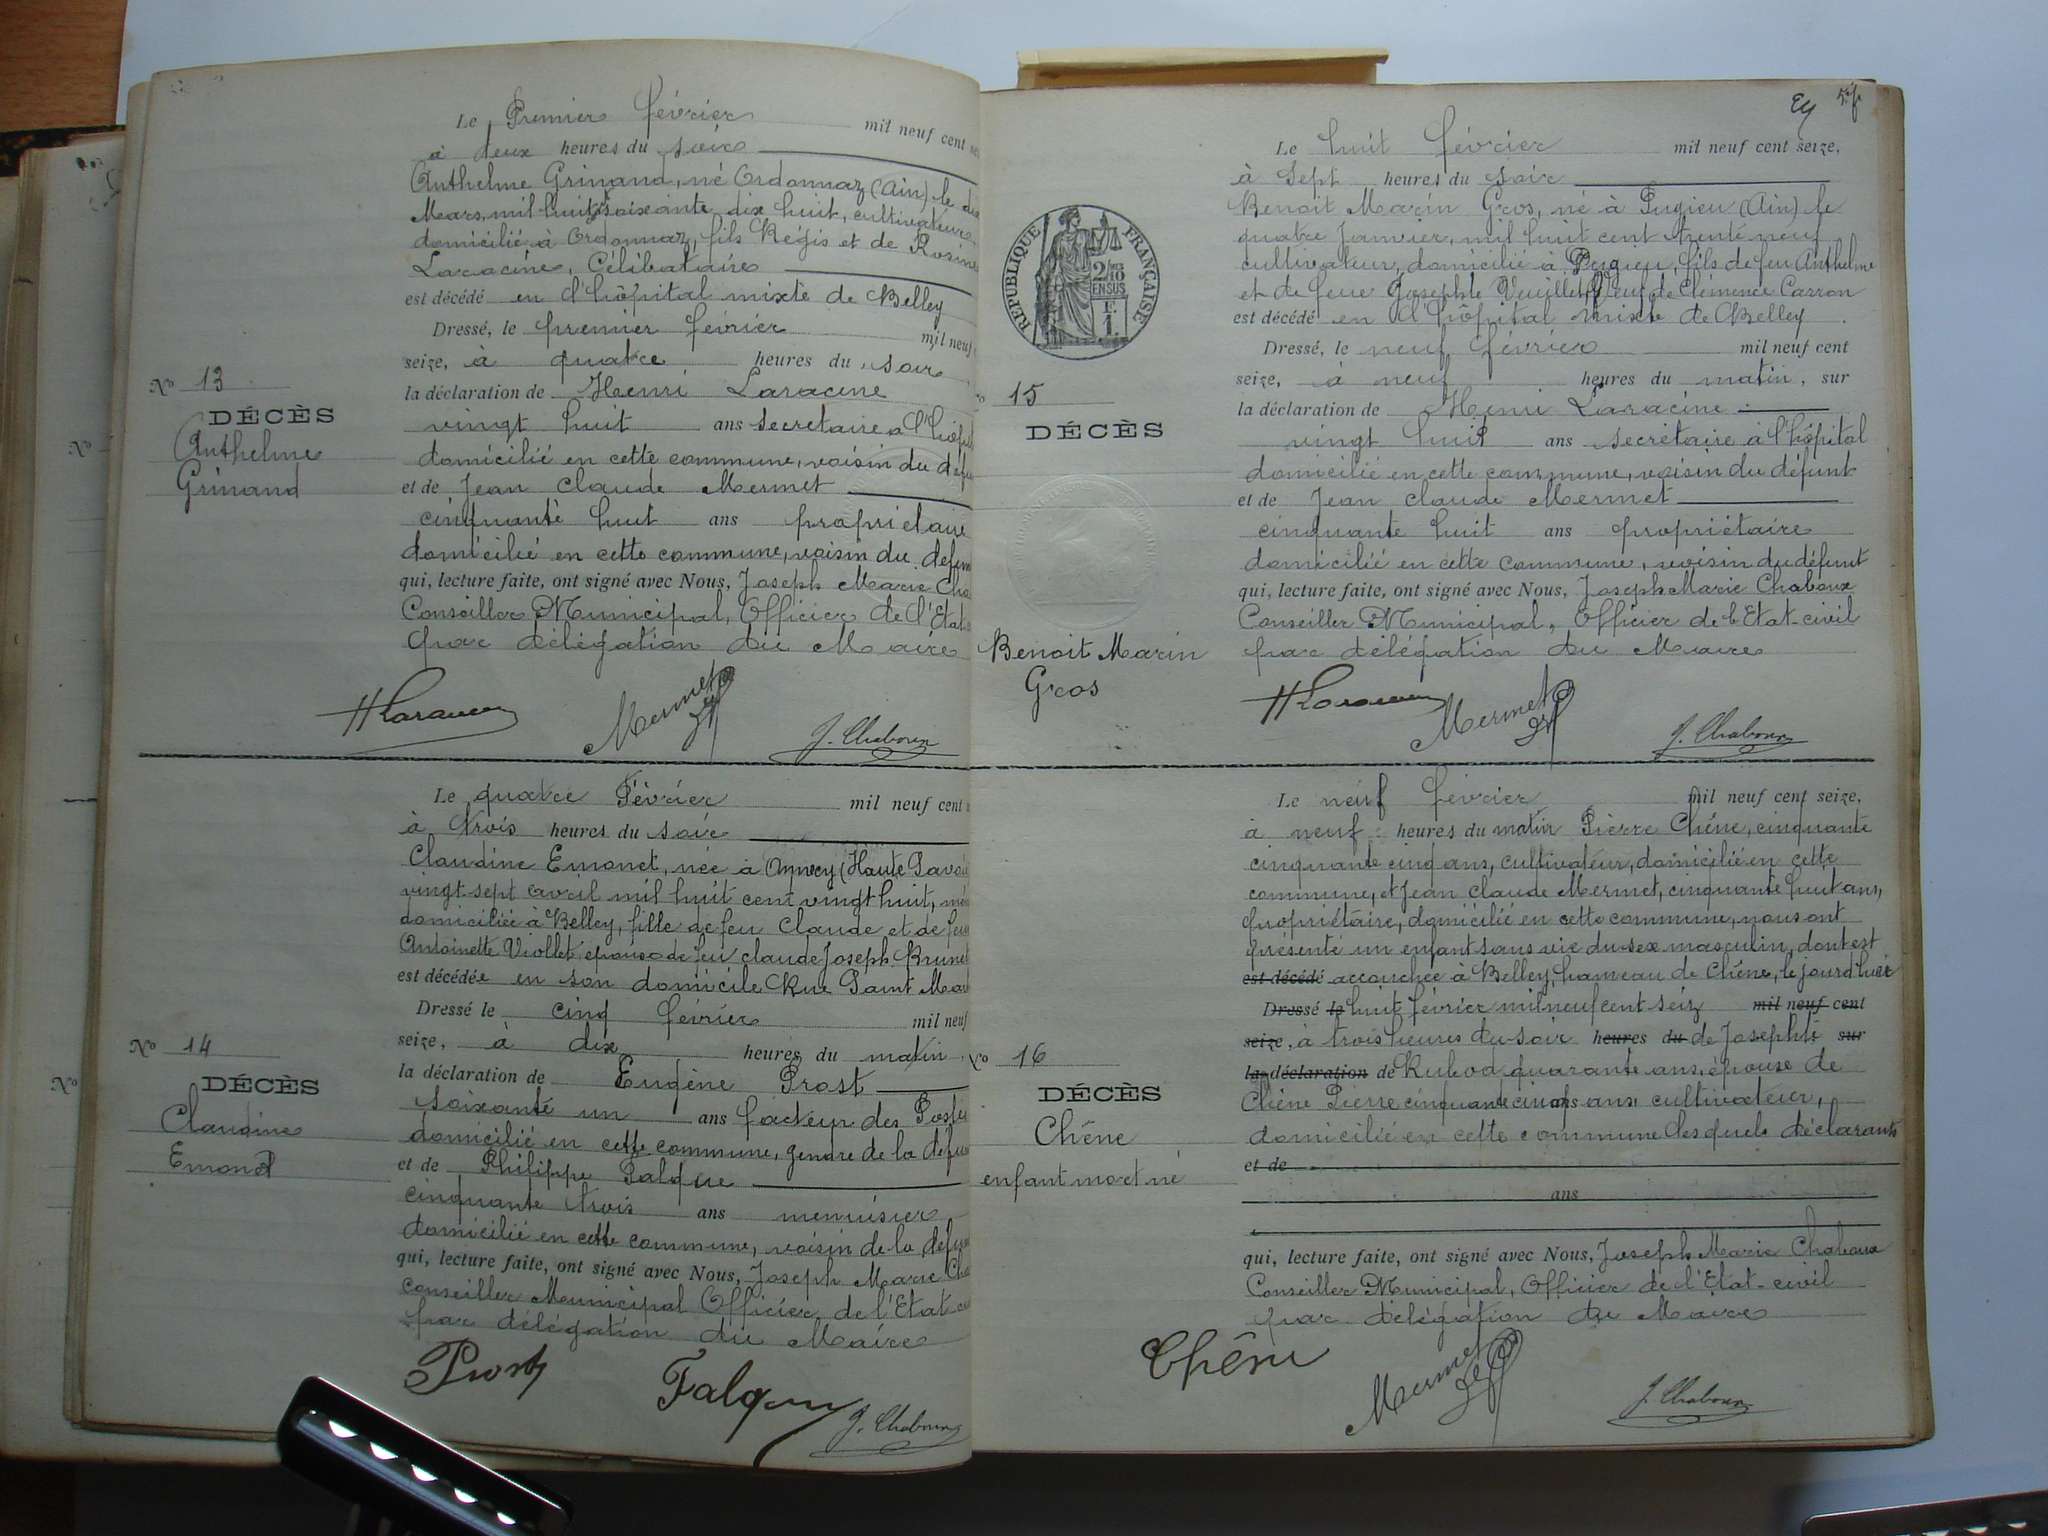 Le Premier février mil neuf cent
à deux heures du soir
Anthelme Grinand, né Ordonnaz (Ain) le
Mars, mil huit soixante dix huit, cultivateur
domicilié à Ordonnaz, fils Régis et de Rosine
Laracine, Célibataire
est décédé en l'hôpital mixte de Belley
Dressé, le premier février mil neuf
seize, à quatre heures du soir
la déclaration de Henri Laracine
vingt huit ans secrétaire à
domicilié en cette commune, voisin du
et de Jean Claude Mermet
cinquante huit ans propriétaire
domicilié en cette commune, voisin du
qui, lecture faite, ont signé avec Nous, Joseph Marie
Conseiller Municipal, Officier de l'Etat
par délégation du Maire
N° 13
DÉCÈS
Anthelme
Grinand
HLaracine
Mermet
J. Chaboux
Le quatre Février mil neuf cent
à trois heures du soir
Claudine Emonet, née à Annecy (Haute
vingt sept avril mil huit cent vingt huit,
domiciliée à Belley, fille de feu Claude et de
Antoinette Viollet épouse de feu Claude Joseph Brunet
est décédée en son domicile Rue Saint
Dressé le cinq février mil neuf
seize, à dix heures du matin
la déclaration de Eugène Prost
soixante un ans facteur des
domicilié en cette commune, gendre de la
et de Philippe Falque
cinquante trois ans menuisier
domicilié en cette commune, voisin de la
qui, lecture faite, ont signé avec Nous, Joseph Marie
Conseiller Municipal Officier de l'Etat
par délégation du Maire
N° 14
DÉCÈS
Claudine
Emonet
Prost
Falque
J. Chaboux
5e f.
RÉPUBLIQUE FRANÇAISE
2/10
EN SUS
F.
1.
Le huit février mil neuf cent seize,
à sept heures du soir
Benoit Marin Gros, né à Pugieu (Ain) le
quatre Janvier, mil huit cent trente neuf
cultivateur, domicilié à Pugieu, fils de feu Anthelme
et de feue Josephte Veuillet, Veuf de Clémence Carron
est décédé en l'hôpital mixte de Belley
Dressé, le neuf février mil neuf cent
seize, à neuf heures du matin, sur
la déclaration de Henri Laracine
vingt huit ans secrétaire à l'hôpital
domicilié en cette commune, voisin du défunt
et de Jean Claude Mermet
cinquante huit ans propriétaire
domicilié en cette commune, voisin du défunt
qui, lecture faite, ont signé avec Nous, Joseph Marie Chaboux
Conseiller Municipal, Officier de l'Etat-civil
par délégation du Maire
15
DÉCÈS
Benoit Marin
Gros
HLaracine
Mermet
J. Chaboux
Le neuf février mil neuf cent seize,
à neuf heures du matin Pierre Chêne, cinquante
cinquante cinq ans, cultivateur, domicilié en cette
commune, et Jean Claude Mermet, cinquante huit ans,
propriétaire, domicilié en cette commune, nous ont
présenté un enfant sans vie du sexe masculin, dont est
est décédé accouchée à Belley, hameau de Chêne, le jourd'hier
Dressé le huit février mil neuf cent seiz mil neuf cent
seize, à trois heures du soir heures du de Josephte sur
la déclaration de quarante ans, épouse de
Chêne Pierre cinquante cinq ans ans cultivateur,
domicilié en cette commune lesquels déclarants
et de
ans
qui, lecture faite, ont signé avec Nous, Joseph Marie Chaboux
Conseiller Municipal, Officier de l'Etat-civil
par délégation du Maire
N° 16
DÉCÈS
Chêne
enfant mort né
Chêne
Mermet
J. Chaboux